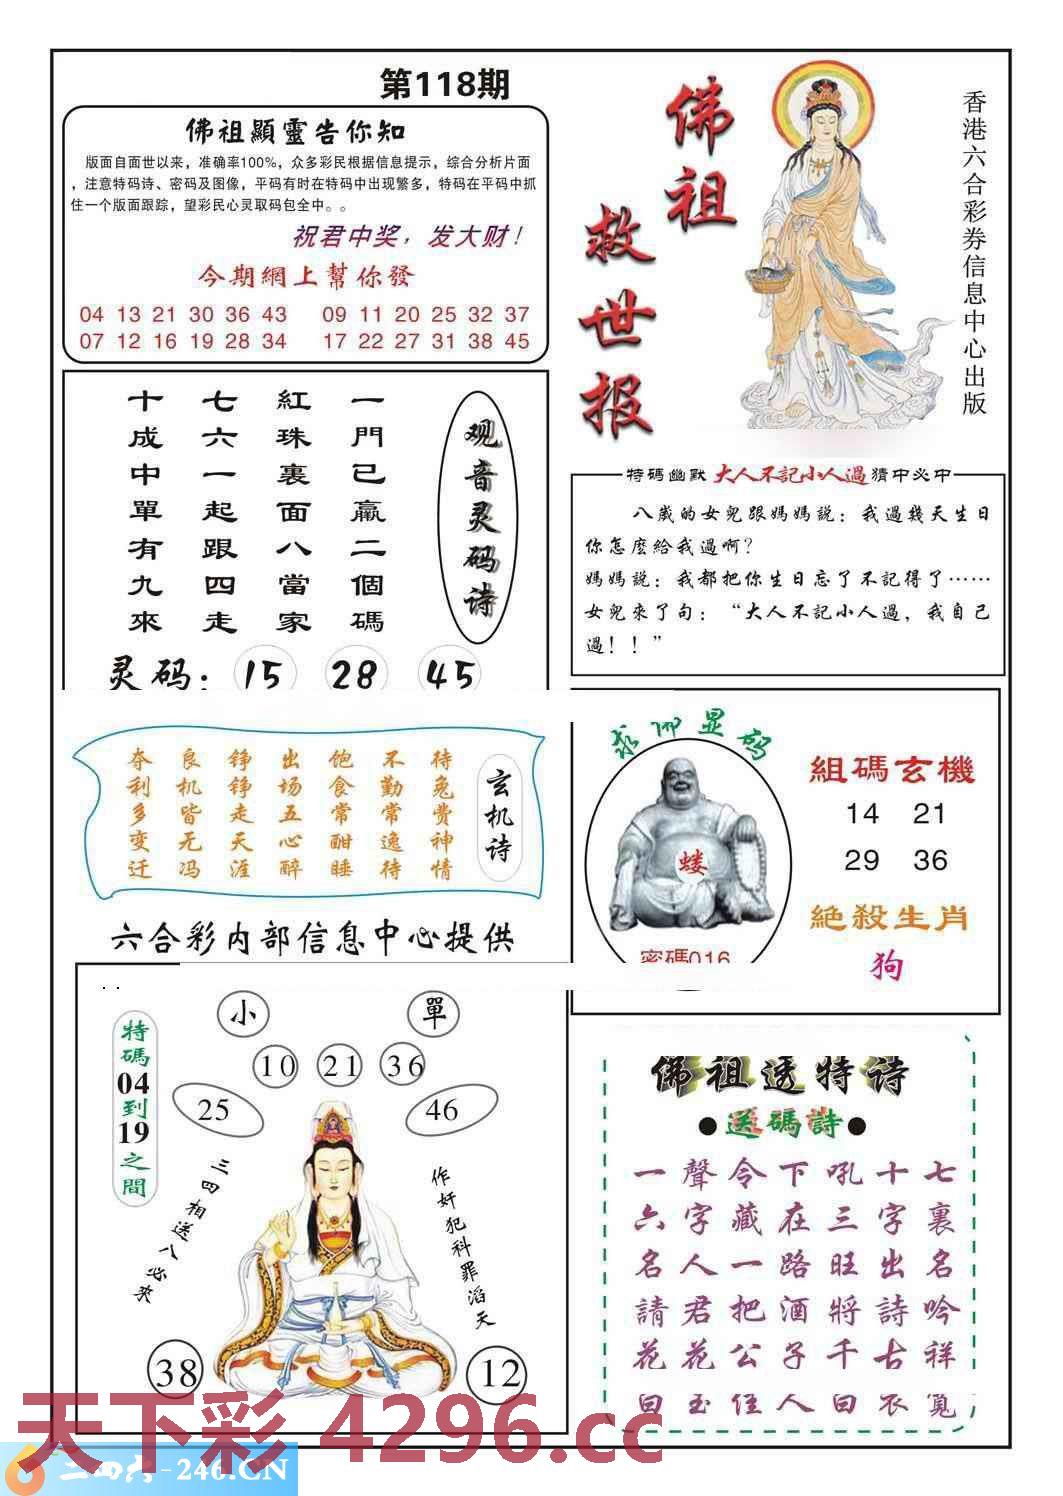 第118期
佛祖顯靈告你知
版面自面世以来，准确率100%，众多彩民根据信息提示，综合分析片面
，注意特码诗、密码及图像，平码有时在特码中出现繁多，特码在平码中抓
住一个版面跟踪，望彩民心灵取码包全中。。
祝君中奖，发大财！
今期網上幫你發
04 13 21 30 36 43 09 11 20 25 32 37
07 12 16 19 28 34 17 22 27 31 38 45
佛祖
救世报
香港六合彩券信息中心出版
观音灵码诗
一門已贏二個碼
紅珠裏面八當家
七六一起跟四走
十成中單有九來
灵码：15 28 45
特碼幽默 大人不記小人過 猜中必中
八歲的女兒跟媽媽説：我過幾天生日
你怎麼給我過啊？
媽媽説：我都把你生日忘了不記得了……
女兒來了句：“大人不記小人過，我自己
過！！”
玄机诗
待兔费神情
不勤常逸待
饱食常酣睡
出场五心醉
铮铮走天涯
良机皆无冯
夺利多变迁
求佛显码
蝼
密碼016
組碼玄機
14 21
29 36
絶殺生肖
狗
六合彩内部信息中心提供
特碼04到19之間
小 單
10 21 36
25 46
三四相送八必來
作奸犯科罪滔天
38 12
佛祖透特诗
●送碼詩●
一聲令下吼十七
六字藏在三字裏
名人一路旺出名
請君把酒將詩吟
花花公子千古祥
曰玉佳人曰衣覓
天下彩 4296.cc
二四六-246.CN